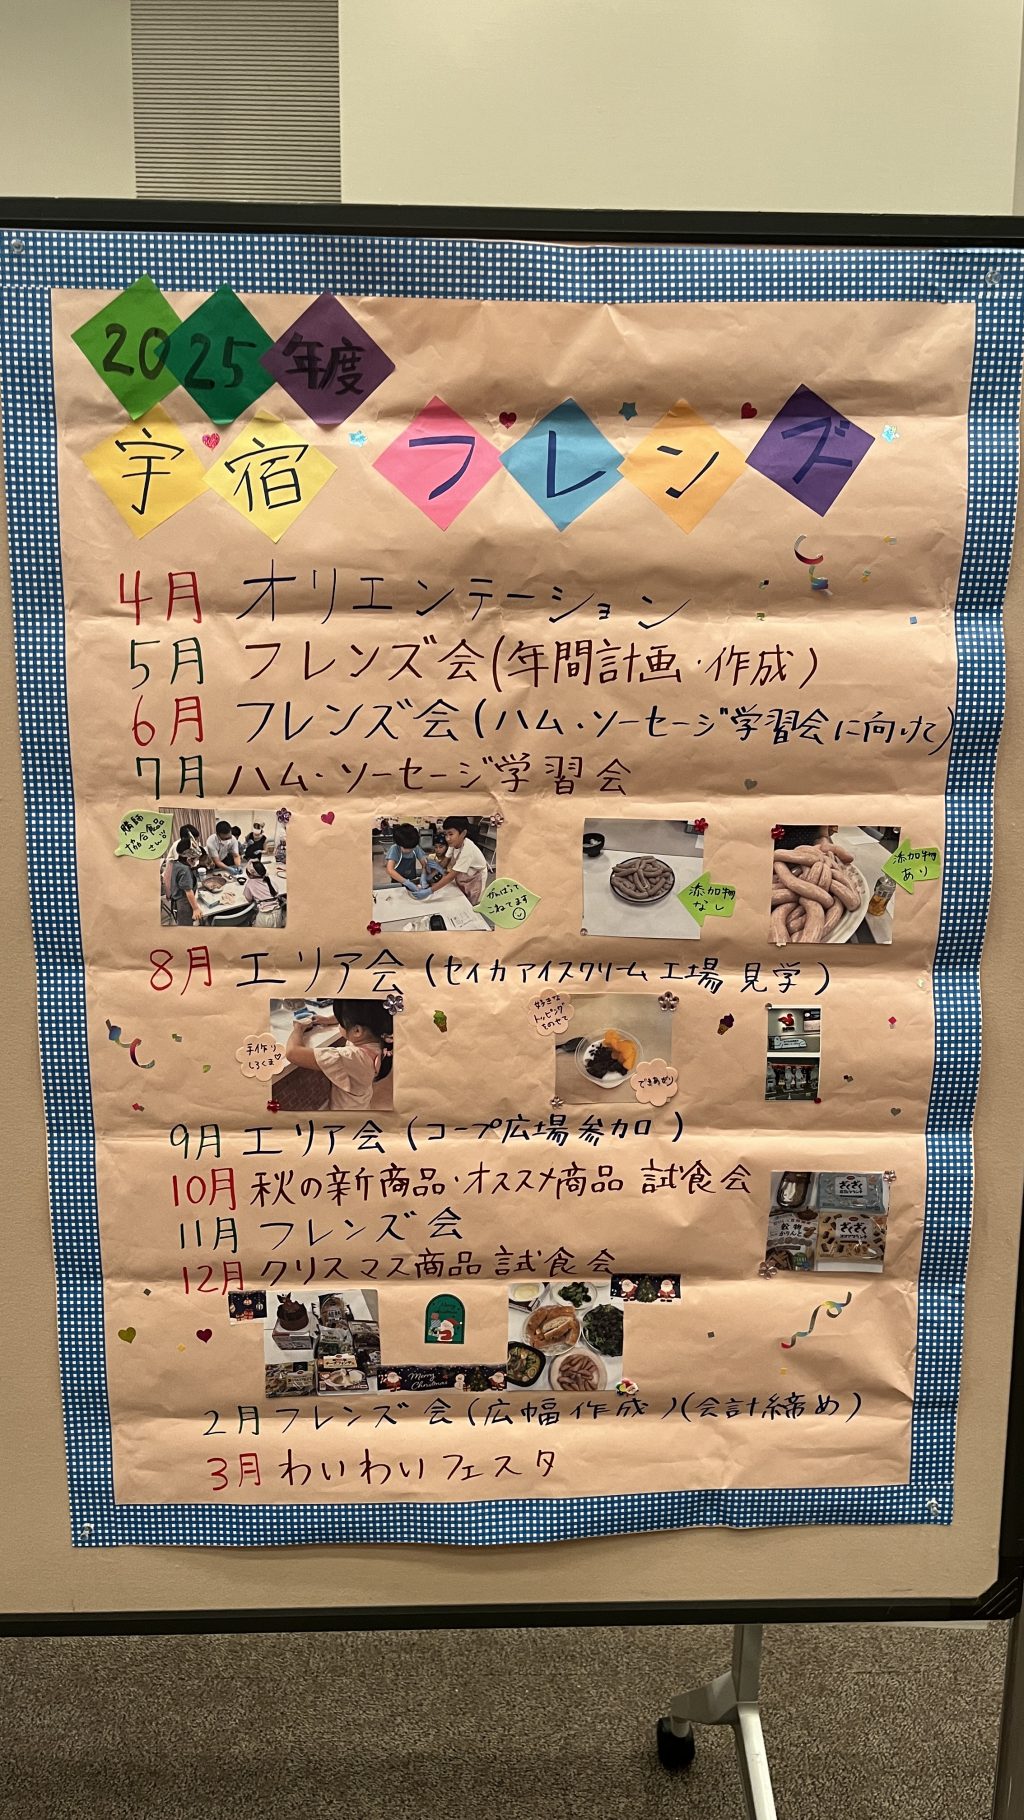 2025年度
宇宿フレンズ
4月 オリエンテーション
5月 フレンズ会(年間計画・作成)
6月 フレンズ会(ハム・ソーセージ学習会に向けて)
7月 ハム・ソーセージ学習会
講師
協会食品
さん
がんばって
こねてます
添加物
なし
添加物
あり
8月 エリア会(セイカアイスクリーム工場見学)
手作り
しろくま
好きな
トッピング
をのせて
できあがり
9月 エリア会(コープ広場参加)
10月 秋の新商品・オススメ商品 試食会
ざくざく
ざくざく
11月 フレンズ会
12月 クリスマス商品試食会
Merry
Christmas
2月 フレンズ会(広幅作成)(会計締め)
3月 わいわいフェスタ